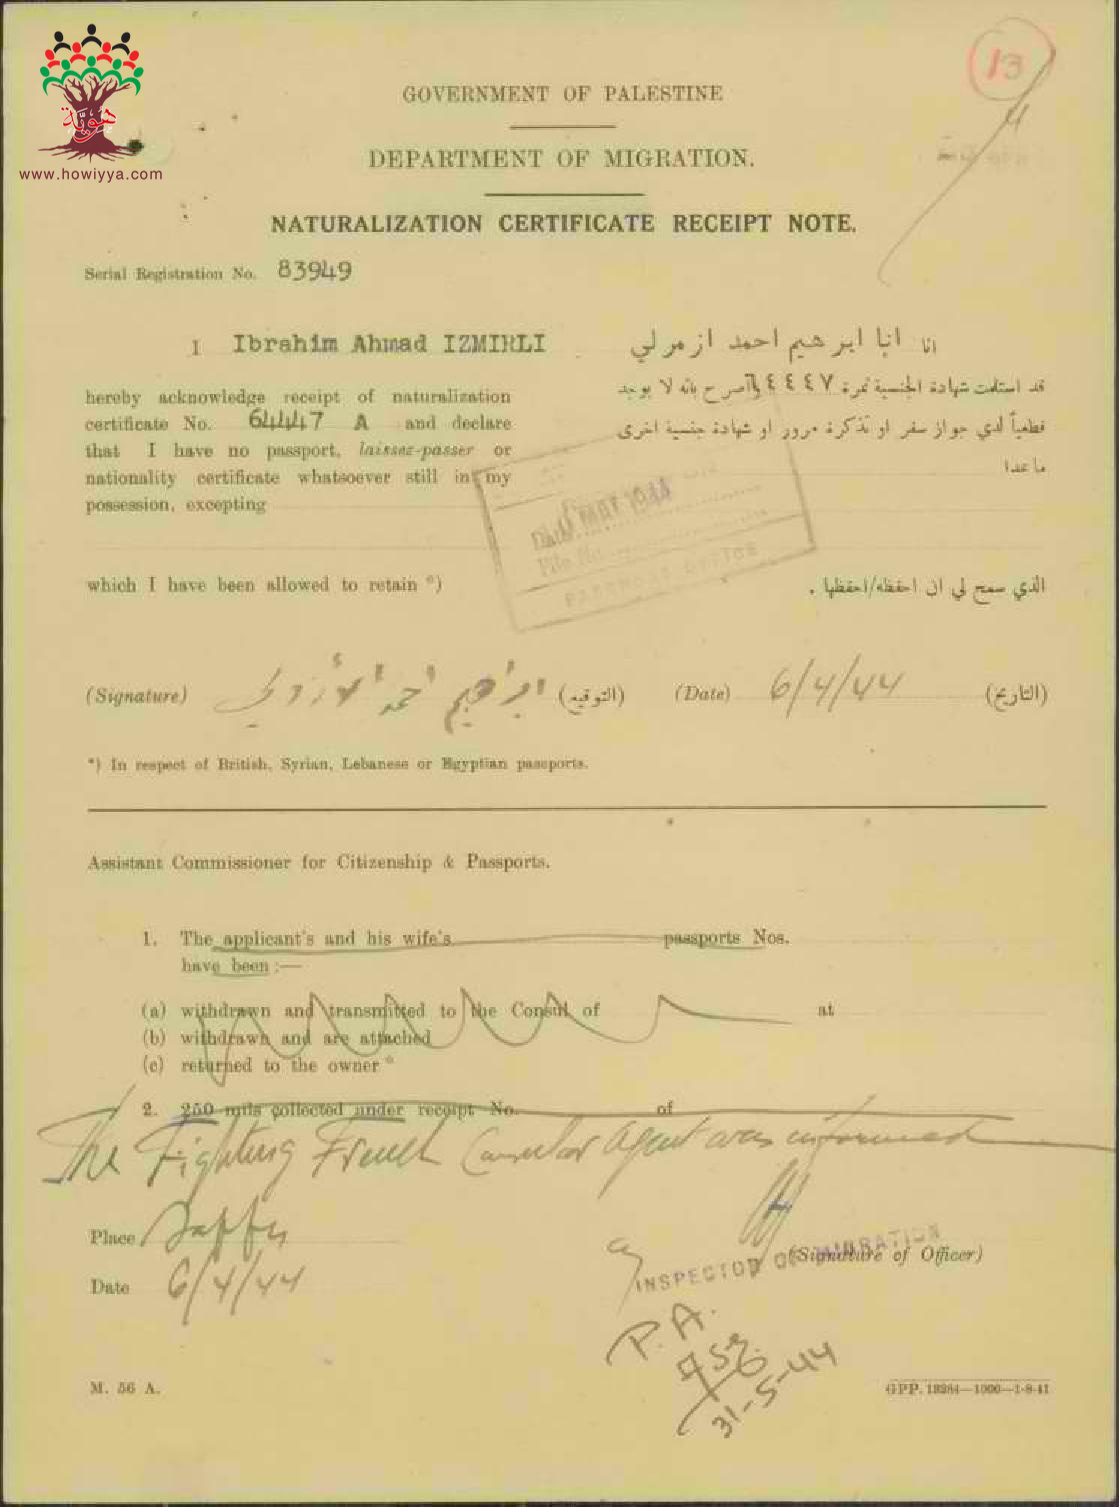 13
هوية
www.howiyya.com
GOVERNMENT OF PALESTINE
DEPARTMENT OF MIGRATION.
NATURALIZATION CERTIFICATE RECEIPT NOTE.
Serial Registration No. 83949
I Ibrahim Ahmad IZMIRLI
hereby acknowledge receipt of naturalization
certificate No. 64447 A and declare
that I have no passport, laissez-passer or
nationality certificate whatsoever still in my
possession, excepting
which I have been allowed to retain *)
انا ابراهيم احمد ازمرلي
قد استلمت شهادة الجنسية نمرة ٦٤٤٤٧ واصرح بانه لا يوجد
قطعياً لدي جواز سفر او تذكرة مرور او شهادة جنسية اخرى
ما عدا
الذي سمح لي ان احفظه/احفظها .
MAY 1944
File No.
(Signature) (التوقيع) (Date) 6/4/44 (التاريخ)
*) In respect of British, Syrian, Lebanese or Egyptian passports.
Assistant Commissioner for Citizenship & Passports.
1. The applicant's and his wife's passports Nos.
have been :—
(a) withdrawn and transmitted to the Consul of at
(b) withdrawn and are attached
(c) returned to the owner *
2. 250 mils collected under receipt No. of
The Fighting French Consular Agent was informed
Place Jaffa
(Signature of Officer)
INSPECTOR OF MIGRATION
Date 6/4/44
P.A.
31-5-44
M. 56 A.
GPP. 13284—1000—1-8-41